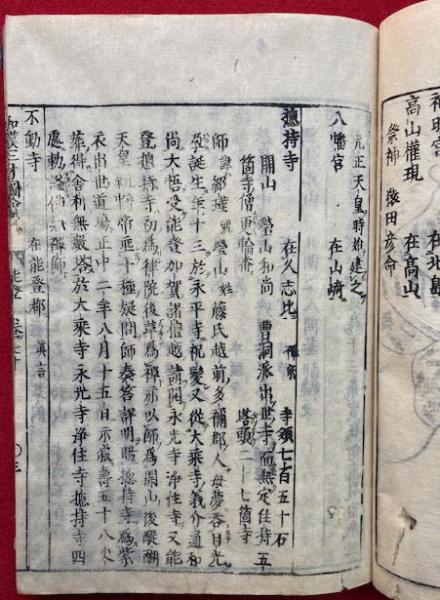 神明宮 在北島
高山權現 在高山
祭神 猿田彦命
元正天皇時始建之
八幡宮 在山崎
總持寺 在久志比 禪宗 寺領七百五十石
開山 瑩山和尚 曹洞派出世寺而無定住持五
箇寺僧更輪番 塔頭二十七箇寺
師諱紹瑾號瑩山姓藤氏越前多禰郡人母夢呑日光
孕誕生年十三於永平寺祝髮又從大乘寺義介通和
尚大悟受能登加賀諸檀越請開永光寺淨住寺又能
登總持寺初爲律院後革爲禪亦以師爲開山後醍醐
天皇 帝垂十種疑問師奏答詳明賜總持寺爲紫
衣出世道場正中二年八月十五日示寂壽五十八火
葬得舍利無數塔於大乘寺永光寺淨住寺總持寺四
處勅謚佛慈禪師
不動寺 在能登郡 眞言
和漢三才圖會 能登